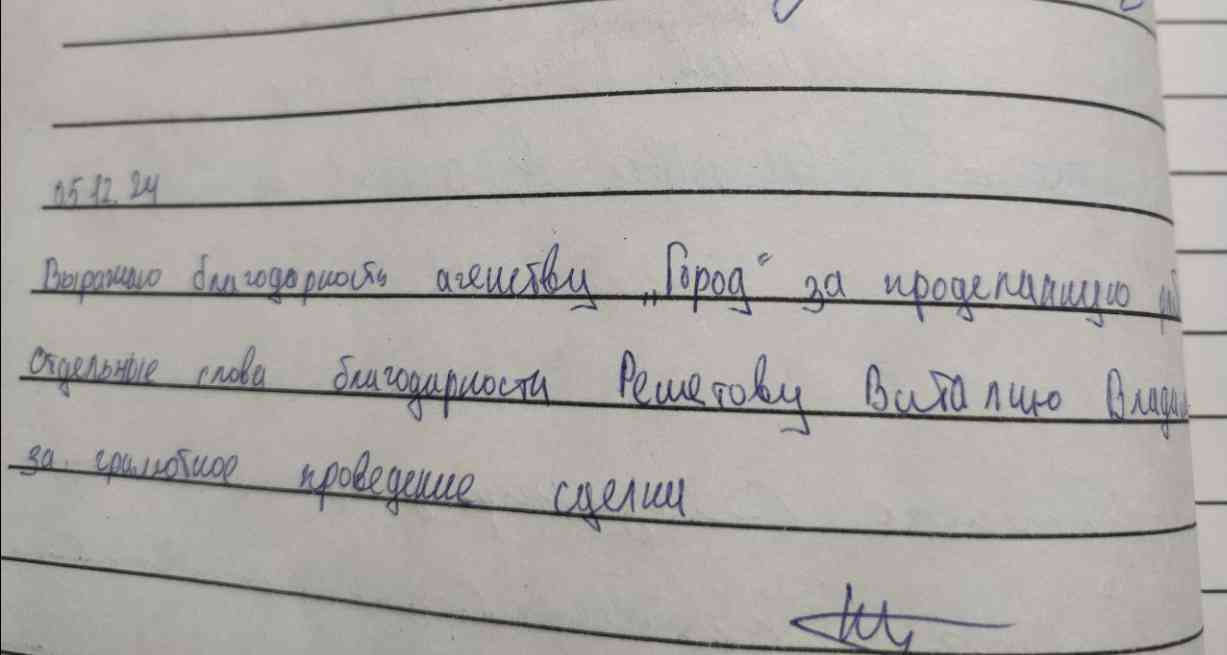 05.12.24
Выражаю благодарность агенству „Город“ за проделанную
Отдельные слова благодарности Решетову Виталию
за грамотное проведение сделки